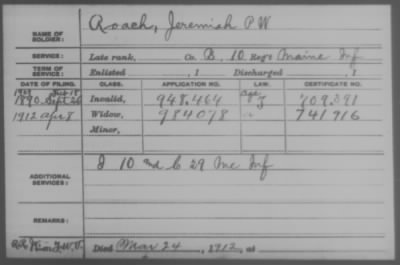 NAME OF SOLDIER: Roach, Jeremiah P W
SERVICE: Late rank, Co. B, 10 Reg't Maine Inf
TERM OF SERVICE: Enlisted , 1 Discharged , 1
DATE OF FILING. CLASS. APPLICATION NO. LAW. CERTIFICATE NO.
1890 Sept 26 Invalid, 948.464 J 709.391
1912 Apr 8 Widow, 984078 741916
Minor,
ADDITIONAL SERVICES: I 10 and C 29 Me Inf
REMARKS:
Died Mar 24, 1912, at